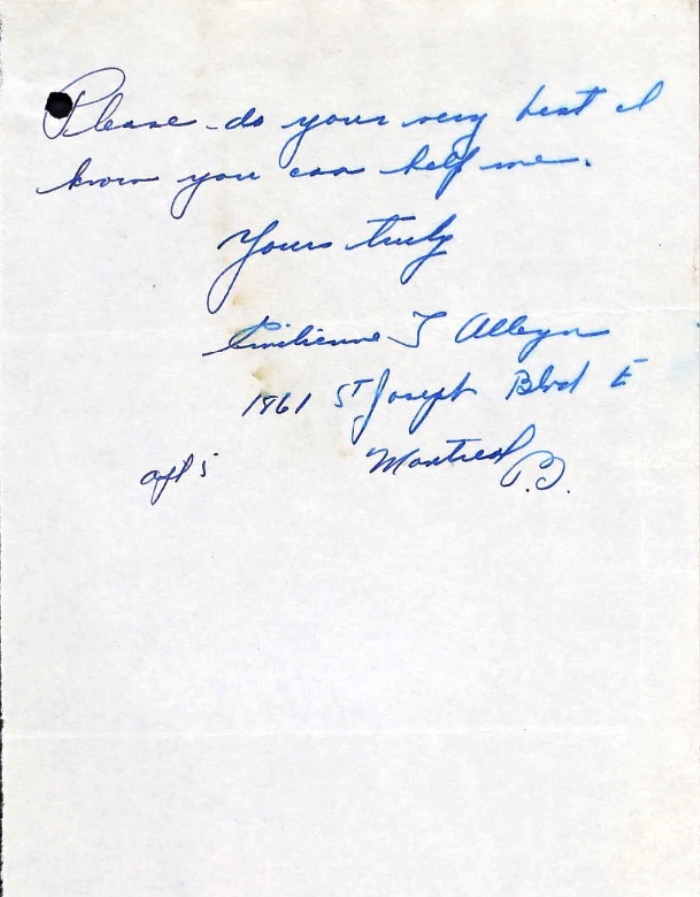 Please do your very best I
know you can help me.
Yours truly
Emilienne T Alleyn
1961 St Joseph Blvd E
apt 5 Montreal P.Q.